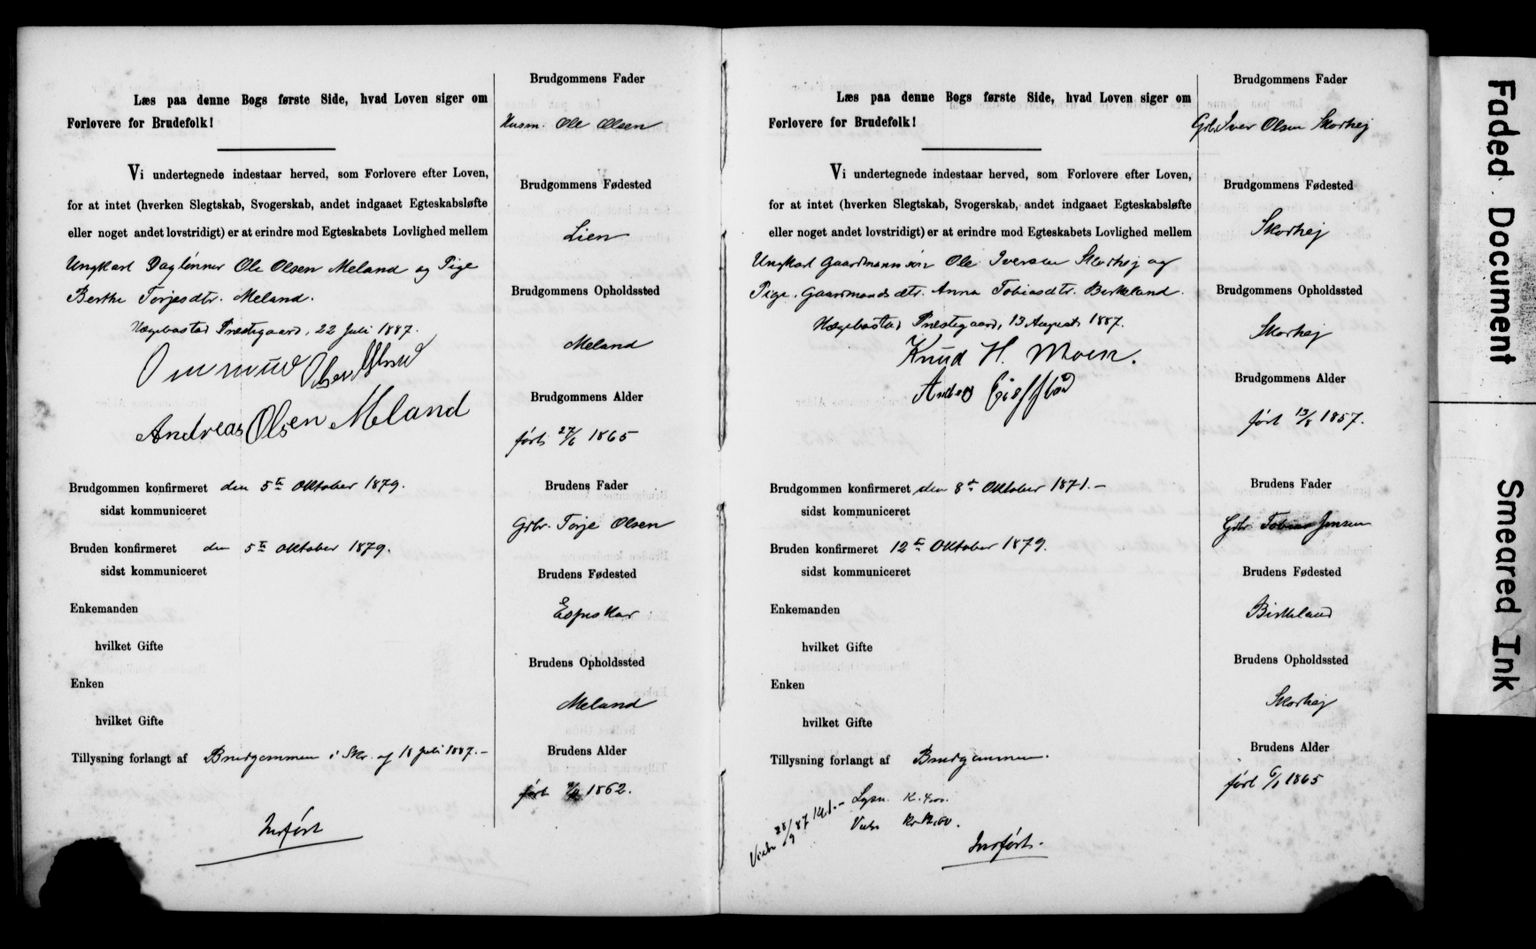 Læs paa denne Bogs første Side, hvad Loven siger om
Forlovere for Brudefolk!
Vi undertegnede indestaar herved, som Forlovere efter Loven,
for at intet (hverken Slegtskab, Svogerskab, andet indgaaet Egteskabsløfte
eller noget andet lovstridigt) er at erindre mod Egteskabets Lovlighed mellem
Ungkarl Daglønner Ole Olsen Meland og Pige
Berthe Torjesdtr. Meland.
Hægebostad Præstegaard, 22 Juli 1887.
Andreas Olsen Meland
Brudgommen konfirmeret den 5te Oktober 1879.
sidst kommuniceret
Bruden konfirmeret den 5te Oktober 1879.
sidst kommuniceret
Enkemanden
hvilket Gifte
Enken
hvilket Gifte
Tillysning forlangt af Brudgommen i Skr. af 18 Juli 1887.-
Indført
Brudgommens Fader
Husm. Ole Olsen
Brudgommens Fødested
Lien
Brudgommens Opholdssted
Meland
Brudgommens Alder
født 27/6 1865
Brudens Fader
Grbr. Torje Olsen
Brudens Fødested
Espeskar
Brudens Opholdssted
Meland
Brudens Alder
født 1862.
Læs paa denne Bogs første Side, hvad Loven siger om
Forlovere for Brudefolk!
Vi undertegnede indestaar herved, som Forlovere efter Loven,
for at intet (hverken Slegtskab, Svogerskab, andet indgaaet Egteskabsløfte
eller noget andet lovstridigt) er at erindre mod Egteskabets Lovlighed mellem
Ungkarl Gaardmannssøn Ole Iversen Skorhej og
Pige, Gaardmandsdtr. Anna Tobiasdtr. Birkeland.
Hægebostad Præstegaard, 13 August 1887.
Knud H. Moen.
Brudgommen konfirmeret den 8de Oktober 1871.-
sidst kommuniceret
Bruden konfirmeret 12te Oktober 1879.
sidst kommuniceret
Enkemanden
hvilket Gifte
Enken
hvilket Gifte
Tillysning forlangt af Brudgommen.
Indført.
Brudgommens Fader
Grbr. Iver Olsen Skorhej
Brudgommens Fødested
Skorhej
Brudgommens Opholdssted
Skorhej
Brudgommens Alder
født 13/8 1857.
Brudens Fader
Grbr. Tobias Jensen
Brudens Fødested
Birkeland
Brudens Opholdssted
Skorhej
Brudens Alder
født 6/1 1865
Faded Document
Smeared Ink